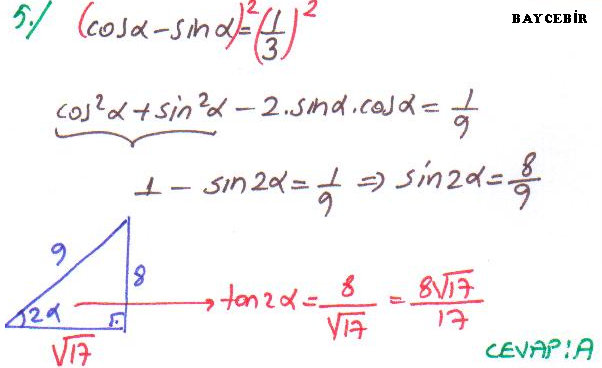 5./ (cosα-sinα)²=(1/3)²
BAYCEBİR
cos²α+sin²α-2.sinα.cosα=1/9
1-sin2α=1/9⇒sin2α=8/9
9
8
2α → tan2α=8/√17=8√17/17
√17
CEVAP:A